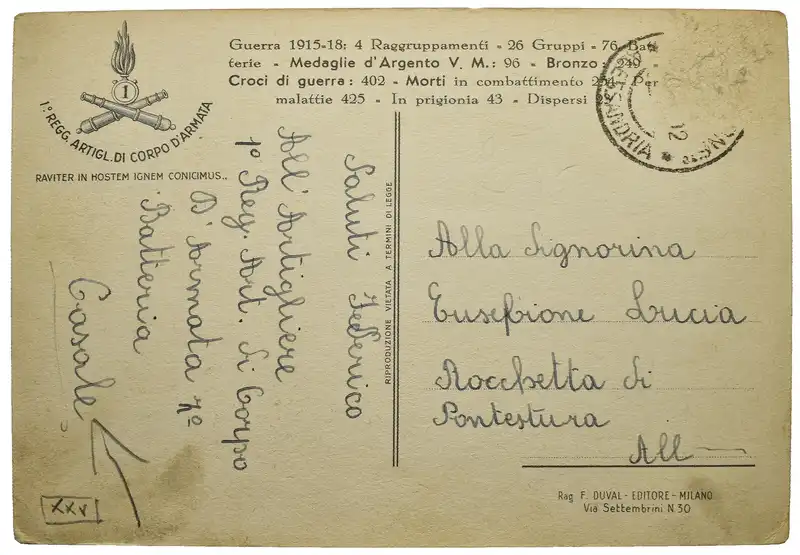 Guerra 1915-18: 4 Raggruppamenti - 26 Gruppi - 76 Bat
terie - Medaglie d'Argento V. M.: 96 - Bronzo: 249
Croci di guerra: 402 - Morti in combattimento 254 - Per
malattie 425 - In prigionia 43 - Dispersi
1
1° REGG. ARTIGL. DI CORPO D'ARMATA
RAVITER IN HOSTEM IGNEM CONICIMUS..
ALESSANDRIA
12
Saluti Federico
All'Artigliere
1° Reg. Art. di Corpo
D'Armata 7ª
Batteria
Casale
XXV
RIPRODUZIONE VIETATA A TERMINI DI LEGGE
Alla Signorina
Eusebione Lucia
Rocchetta di
Pontestura
All
Rag F. DUVAL - EDITORE - MILANO
Via Settembrini N 30